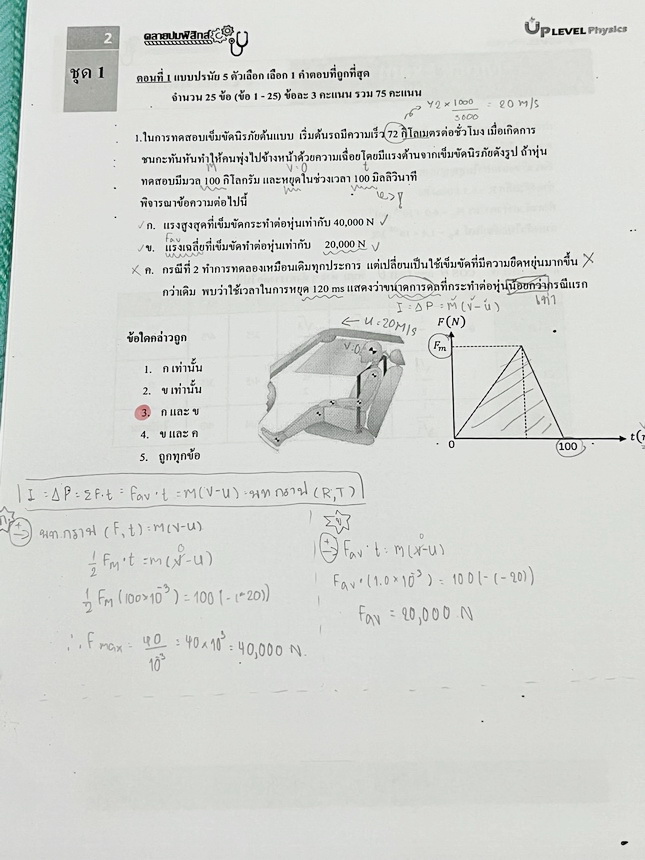 2
คลายปมฟิสิกส์
UP LEVEL Physics
ชุด 1
ตอนที่ 1 แบบปรนัย 5 ตัวเลือก เลือก 1 คำตอบที่ถูกที่สุด
จำนวน 25 ข้อ (ข้อ 1 - 25) ข้อละ 3 คะแนน รวม 75 คะแนน
72 × 1000/3600 = 20 m/s
1.ในการทดสอบเข็มขัดนิรภัยต้นแบบ เริ่มต้นรถมีความเร็ว 72 กิโลเมตรต่อชั่วโมง เมื่อเกิดการ
ชนกะทันหันทำให้คนพุ่งไปข้างหน้าด้วยความเฉื่อยโดยมีแรงต้านจากเข็มขัดนิรภัยดังรูป ถ้าหุ่น
m v=0 t
ทดสอบมีมวล 100 กิโลกรัม และหยุดในช่วงเวลา 100 มิลลิวินาที
พิจารณาข้อความต่อไปนี้
✓ ก. แรงสูงสุดที่เข็มขัดกระทำต่อหุ่นเท่ากับ 40,000 N ✓
Fav
✓ ข. แรงเฉลี่ยที่เข็มขัดทำต่อหุ่นเท่ากับ 20,000 N ✓
X ค. กรณีที่ 2 ทำการทดลองเหมือนเดิมทุกประการ แต่เปลี่ยนเป็นใช้เข็มขัดที่มีความยืดหยุ่นมากขึ้น X
กว่าเดิม พบว่าใช้เวลาในการหยุด 120 ms แสดงว่าขนาดการดลที่กระทำต่อหุ่นน้อยกว่ากรณีแรก
I = ΔP = m(v-u) เท่า
ข้อใดกล่าวถูก
← u=20m/s
v=0
F(N)
1. ก เท่านั้น
Fm
2. ข เท่านั้น
3. ก และ ข
4. ข และ ค
0 100 t(
5. ถูกทุกข้อ
I = ΔP = ΣF·t = Fav·t = m(v-u) = พท.กราฟ (F,T)
พท.กราฟ (F,t) = m(v-u)
½ Fm·t = m(v⁰-u)
½ Fm(100×10⁻³) = 100(-(-20))
∴ Fmax = 40/10⁻³ = 40×10³ = 40,000 N.
ข
Fav·t = m(v⁰-u)
Fav·(100×10⁻³) = 100(-(-20))
Fav = 20,000 N